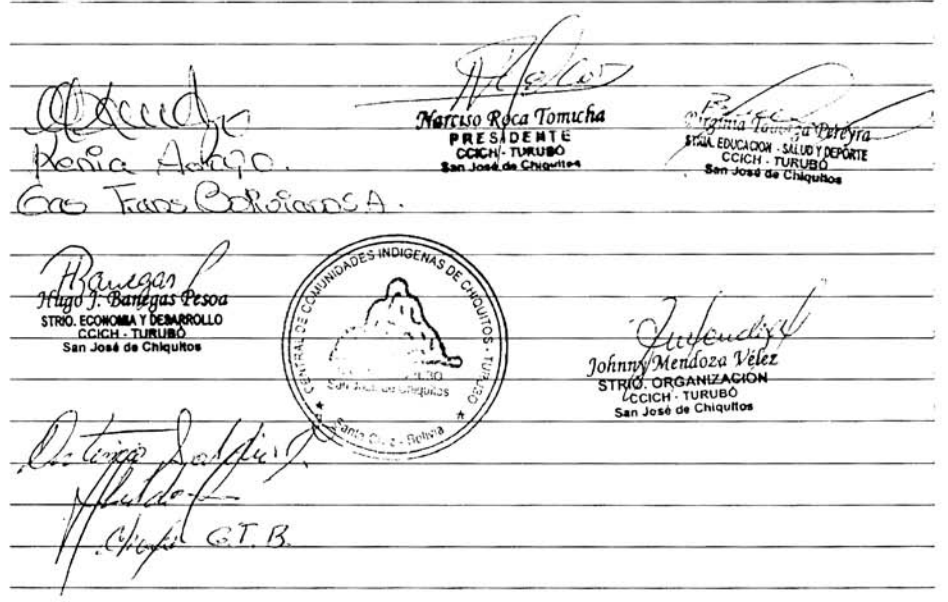 Kenia
Gas Trans Boliviano S.A.
Narciso Roca Tomicha
PRESIDENTE
CCICH - TURUBÓ
San José de Chiquitos
Virginia Pereyra
STRIA. EDUCACION - SALUD Y DEPORTE
CCICH - TURUBO
San José de Chiquitos
Hugo J. Banegas Pesoa
STRIO. ECONOMIA Y DESARROLLO
CCICH - TURUBÓ
San José de Chiquitos
CENTRAL DE COMUNIDADES INDIGENAS DE CHIQUITOS - TURUBO
San José de Chiquitos
Santa Cruz - Bolivia
Johnny Mendoza Vélez
STRIO. ORGANIZACION
CCICH - TURUBÓ
San José de Chiquitos
G.T.B.